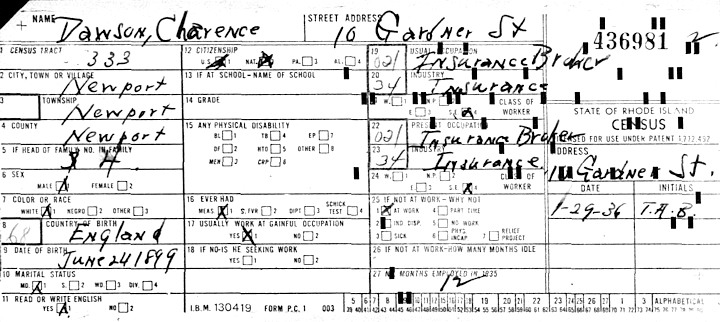 NAME Dawson, Charence STREET ADDRESS 10 Gardner St
436981 2
1 CENSUS TRACT 333
12 CITIZENSHIP
U.S. NAT. PA. 3 AL. 4
19 USUAL OCCUPATION
021 Insurance Broker
2 CITY, TOWN OR VILLAGE
Newport
13 IF AT SCHOOL-NAME OF SCHOOL
20 INDUSTRY
34 Insurance
3 TOWNSHIP
Newport
14 GRADE
W. 1 N P 2 CLASS OF
E 3 S.E. WORKER
STATE OF RHODE ISLAND
CENSUS
USED FOR USE UNDER PATENT 1,772,492
4 COUNTY
Newport
15 ANY PHYSICAL DISABILITY
BL 1 TB 4 EP 7
DF 2 HTD 5 OTHER 8
MEN 2 CRP 6
22 PRESENT OCCUPATION
021 Insurance Broker
5 IF HEAD OF FAMILY NO. IN FAMILY
4
23 INDUSTRY
34 Insurance
ADDRESS
10 Gardner St.
6 SEX
MALE 1 FEMALE 2
24 W. 1 N P 2 CLASS OF
E 3 S.E. WORKER
DATE INITIALS
1-29-36 T.A.B.
7 COLOR OR RACE
WHITE 1 NEGRO 2 OTHER 3
16 EVER HAD
MEAS. 1 S. FVR 2 DIPT 3 SCHICK TEST 4
25 IF NOT AT WORK-WHY NOT
1 AT WORK 4 PART TIME
2 IND. DISP. 5 NO-WORK
3 SICK 6 PHYS. INCAP 7 RELIEF PROJECT
8 COUNTRY OF BIRTH
68 England
17 USUALLY WORK AT GAINFUL OCCUPATION
YES 1 NO 2
9 DATE OF BIRTH
June 24 1899
18 IF NO-IS HE SEEKING WORK
YES 1 NO 2
26 IF NOT AT WORK-HOW MANY MONTHS IDLE
10 MARITAL STATUS
MD. 1 S. 2 WD 3 DIV. 4
27 NO MONTHS EMPLOYED IN 1935
12
11 READ OR WRITE ENGLISH
YES 1 NO 2
I.B.M. 130419 FORM P.C. 1 003
ALPHABETICAL